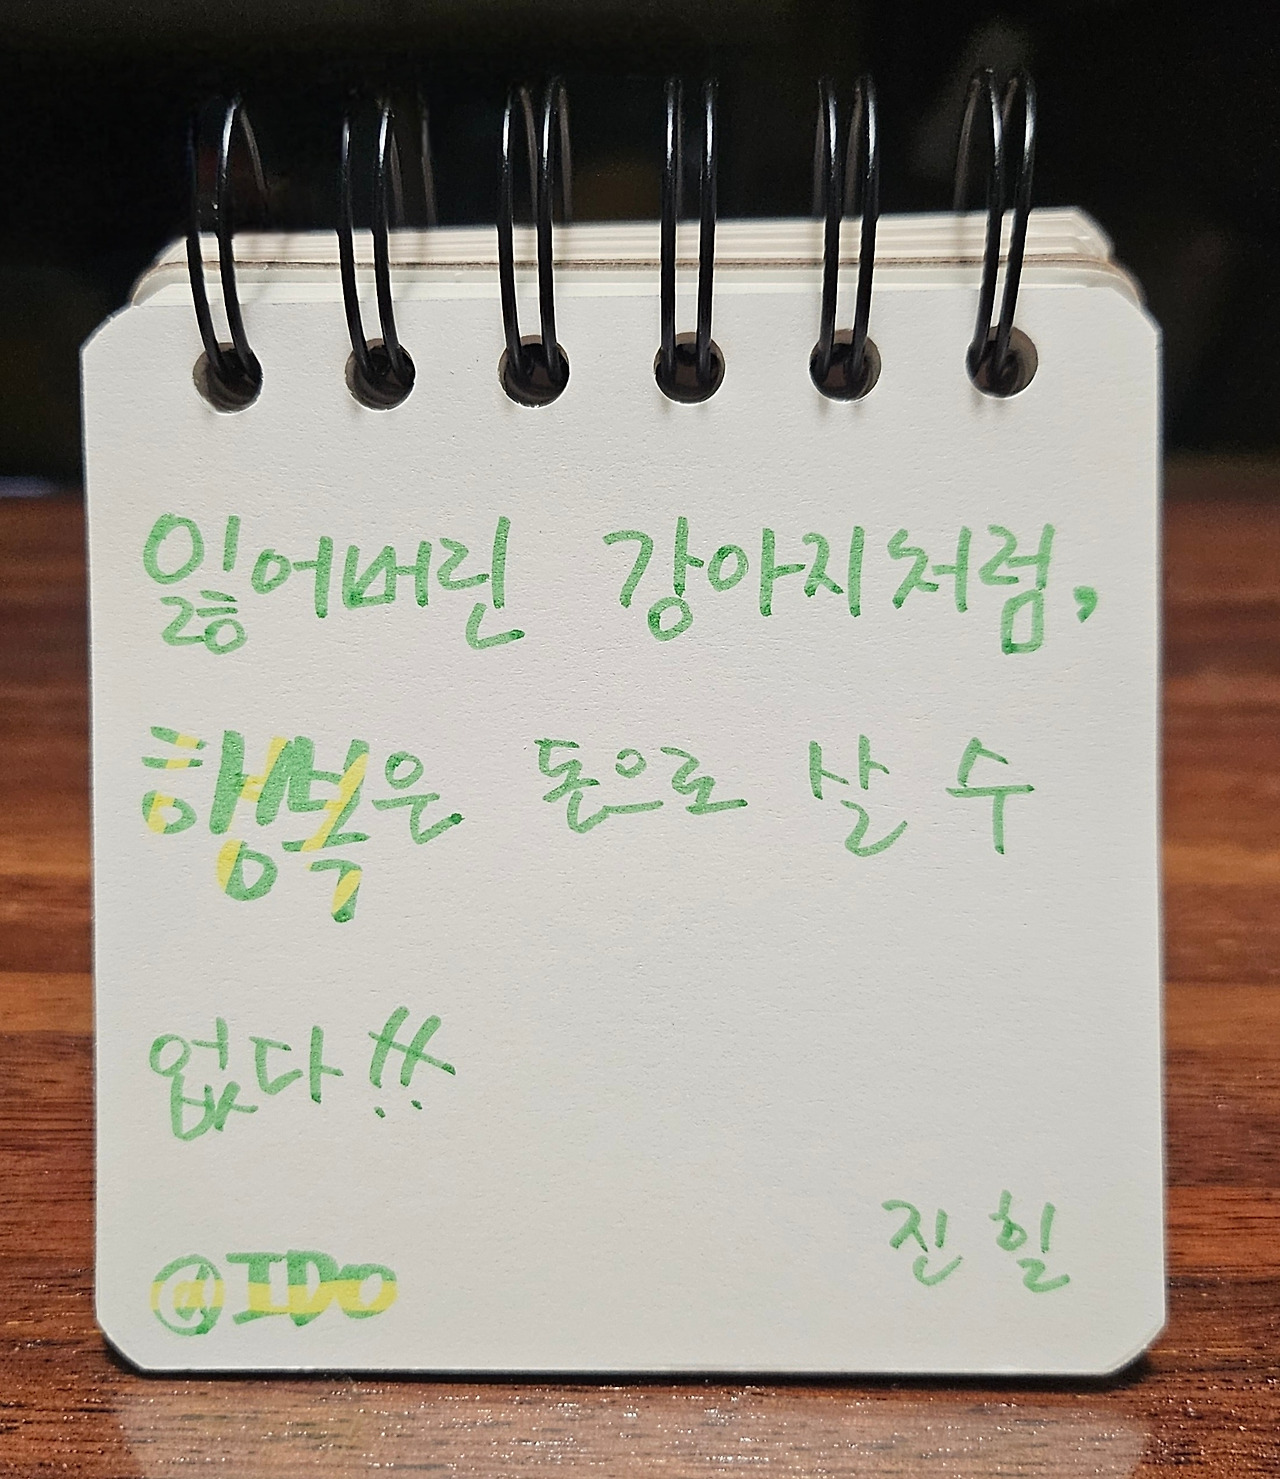 잃어버린 강아지처럼,
행복은 돈으로 살 수
없다!!
진 힐
@IDo